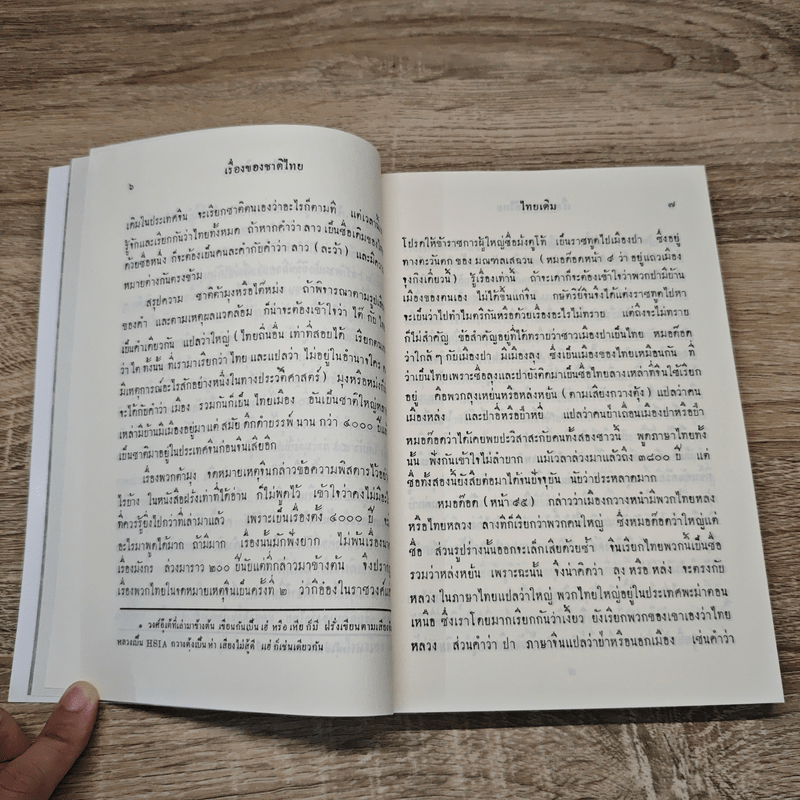 ๖
เรื่องของชาติไทย
เดิมในประเทศจีน จะเรียกชาติตนเองว่าอะไรก็ตามที แต่เวลานี้
รู้จักและเรียกกันว่าไทยทั้งหมด ถ้าหากคำว่า ลาว เป็นชื่อเดิมของ
ด้วยชื่อหนึ่ง ก็จะต้องเป็นคนละคำกับคำว่า ลาว (ละว้า) และมีความ
หมายต่างกันตรงข้าม
สรุปความ ชาติต้ามุงหรือไต๋หม่ง ถ้าพิจารณาตามรูปเสียง
ของคำ และตามเหตุผลแวดล้อม ก็น่าจะต้องเข้าใจว่า ไต๋ กับ
เป็นคำเดียวกัน แปลว่าใหญ่ (ไทยถิ่นอื่น เท่าที่สอบได้ เรียกตน
ว่า ไต ทั้งนั้น ที่เรามาเรียกว่า ไทย และแปลว่า ไม่อยู่ในอำนาจใคร
มีเหตุการณ์อะไรสักอย่างหนึ่งในทางประวัติศาสตร์) มุงหรือหม่ง
จะได้กับคำว่า เมือง รวมกันก็เป็น ไทยเมือง อันเป็นชาติใหญ่
เหล่ามีบ้านมีเมืองอยู่มาแต่ สมัย ดึกดำบรรพ์ นาน กว่า ๔๐๐๐ ปี
เป็นชาติมาอยู่ในประเทศจีนก่อนจีนเสียอีก
เรื่องพวกต้ามุง จดหมายเหตุจีนกล่าวข้อความพิสดารไว้อย่าง
ไรบ้าง ในหนังสือฝรั่งเท่าที่ได้อ่าน ก็ไม่พูดไว้ เข้าใจว่าคงไม่มีอะไร
ที่ควรรู้ยิ่งไปกว่าที่เล่ามาแล้ว เพราะเป็นเรื่องตั้ง ๔๐๐๐ ปี
อะไรมาพูดได้มาก ถ้ามีมาก เรื่องนั้นมักฟั่งยาก ไม่พ้นเรื่อง
เรื่องมังกร ล่วงมาราว ๒๐๐ ปีนับแต่ที่กล่าวมาข้างต้น จึงปราก
เรื่องพวกไทยในจดหมายเหตุจีนเป็นครั้งที่ ๒ ว่ากิอ๋องในราชวงศ์
* วงศ์อู๊เต้ที่เล่ามาข้างต้น เขียนกันเป็น เฮ่ หรือ เหีย ก็มี ฝรั่งเขียนตามเสียง
หลวงเป็น HSIA กวางตุ้งเป็น ห่า เสียงไม่สู้ดี แฮ่ ก็เช่นเดียวกัน
ไทยเดิม
๗
โปรดให้ข้าราชการผู้ใหญ่ชื่อมังคูโท้ เป็นราชทูตไปเมืองปา ซึ่งอยู่
ทางตะวันตก ของ มณฑลเสฉวน (หมอด๊อดหน้า ๔ ว่า อยู่แถวเมือง
จุงกิงเดี๋ยวนี้) รู้เรื่องเท่านี้ ถ้าจะเดาก็จะต้องเข้าใจว่าพวกปามีบ้าน
เมืองของตนเอง ไม่ได้ขึ้นแก่จีน กษัตริย์จีนจึงได้แต่งราชทูตไปหา
จะเป็นว่าไปทำไมตรีกันหรือด้วยเรื่องอะไรไม่ทราบ แต่ถึงจะไม่ทราบ
ก็ไม่สำคัญ ข้อสำคัญอยู่ที่ได้ทราบว่าชาวเมืองปาเป็นไทย หมอด๊อด
ว่าใกล้ ๆ กับเมืองปา มีเมืองลุง ซึ่งเป็นเมืองของไทยเหมือนกัน ที่
ว่าเป็นไทยเพราะชื่อลุงและปายังติดมาเป็นชื่อไทยลางเหล่าที่จีนใช้เรียก
อยู่ คือพวกลุงเหย็นหรือหล่งหยัน (ตามเสียงกวางตุ้ง) แปลว่าคน
เมืองหล่ง และปายี่หรือป่ายี่ แปลว่าคนป่าเถื่อนเมืองปาหรือป่า
หมอด๊อดว่าได้เคยพบปะวิสาสะกับคนทั้งสองชาวนี้ พูดภาษาไทยทั้ง
นั้น ฟังกันเข้าใจไม่ลำยาก แม้เวลาล่วงมาแล้วถึง ๓๘๐๐ ปี แต่
ชื่อทั้งสองนี้ยังสืบต่อมาได้จนปัจจุบัน นับว่าประหลาดมาก
หมอด๊อด (หน้า ๙๕) กล่าวว่าเมืองกวางหน้ามีพวกไทยหลง
หรือไทยหลวง ลางทีก็เรียกว่าพวกคนใหญ่ ซึ่งหมอด๊อดว่าใหญ่แต่
ชื่อ ส่วนรูปร่างนั้นออกจะเล็กเสียด้วยซ้ำ จีนเรียกไทยพวกนี้เป็นชื่อ
รวมว่าหล่งหย่น เพราะฉะนั้น จึงน่าคิดว่า ลุง หรือ หล่ง จะตรงกับ
หลวง ในภาษาไทยแปลว่าใหญ่ พวกไทยใหญ่อยู่ในประเทศพะม่าตอน
เหนือ ซึ่งเราโดยมากเรียกกันว่าเงี้ยว ยังเรียกพวกของเขาเองว่าไทย
หลวง ส่วนคำว่า ปา ภาษาจีนแปลว่าป่าหรือนอกเมือง เช่นคำว่า